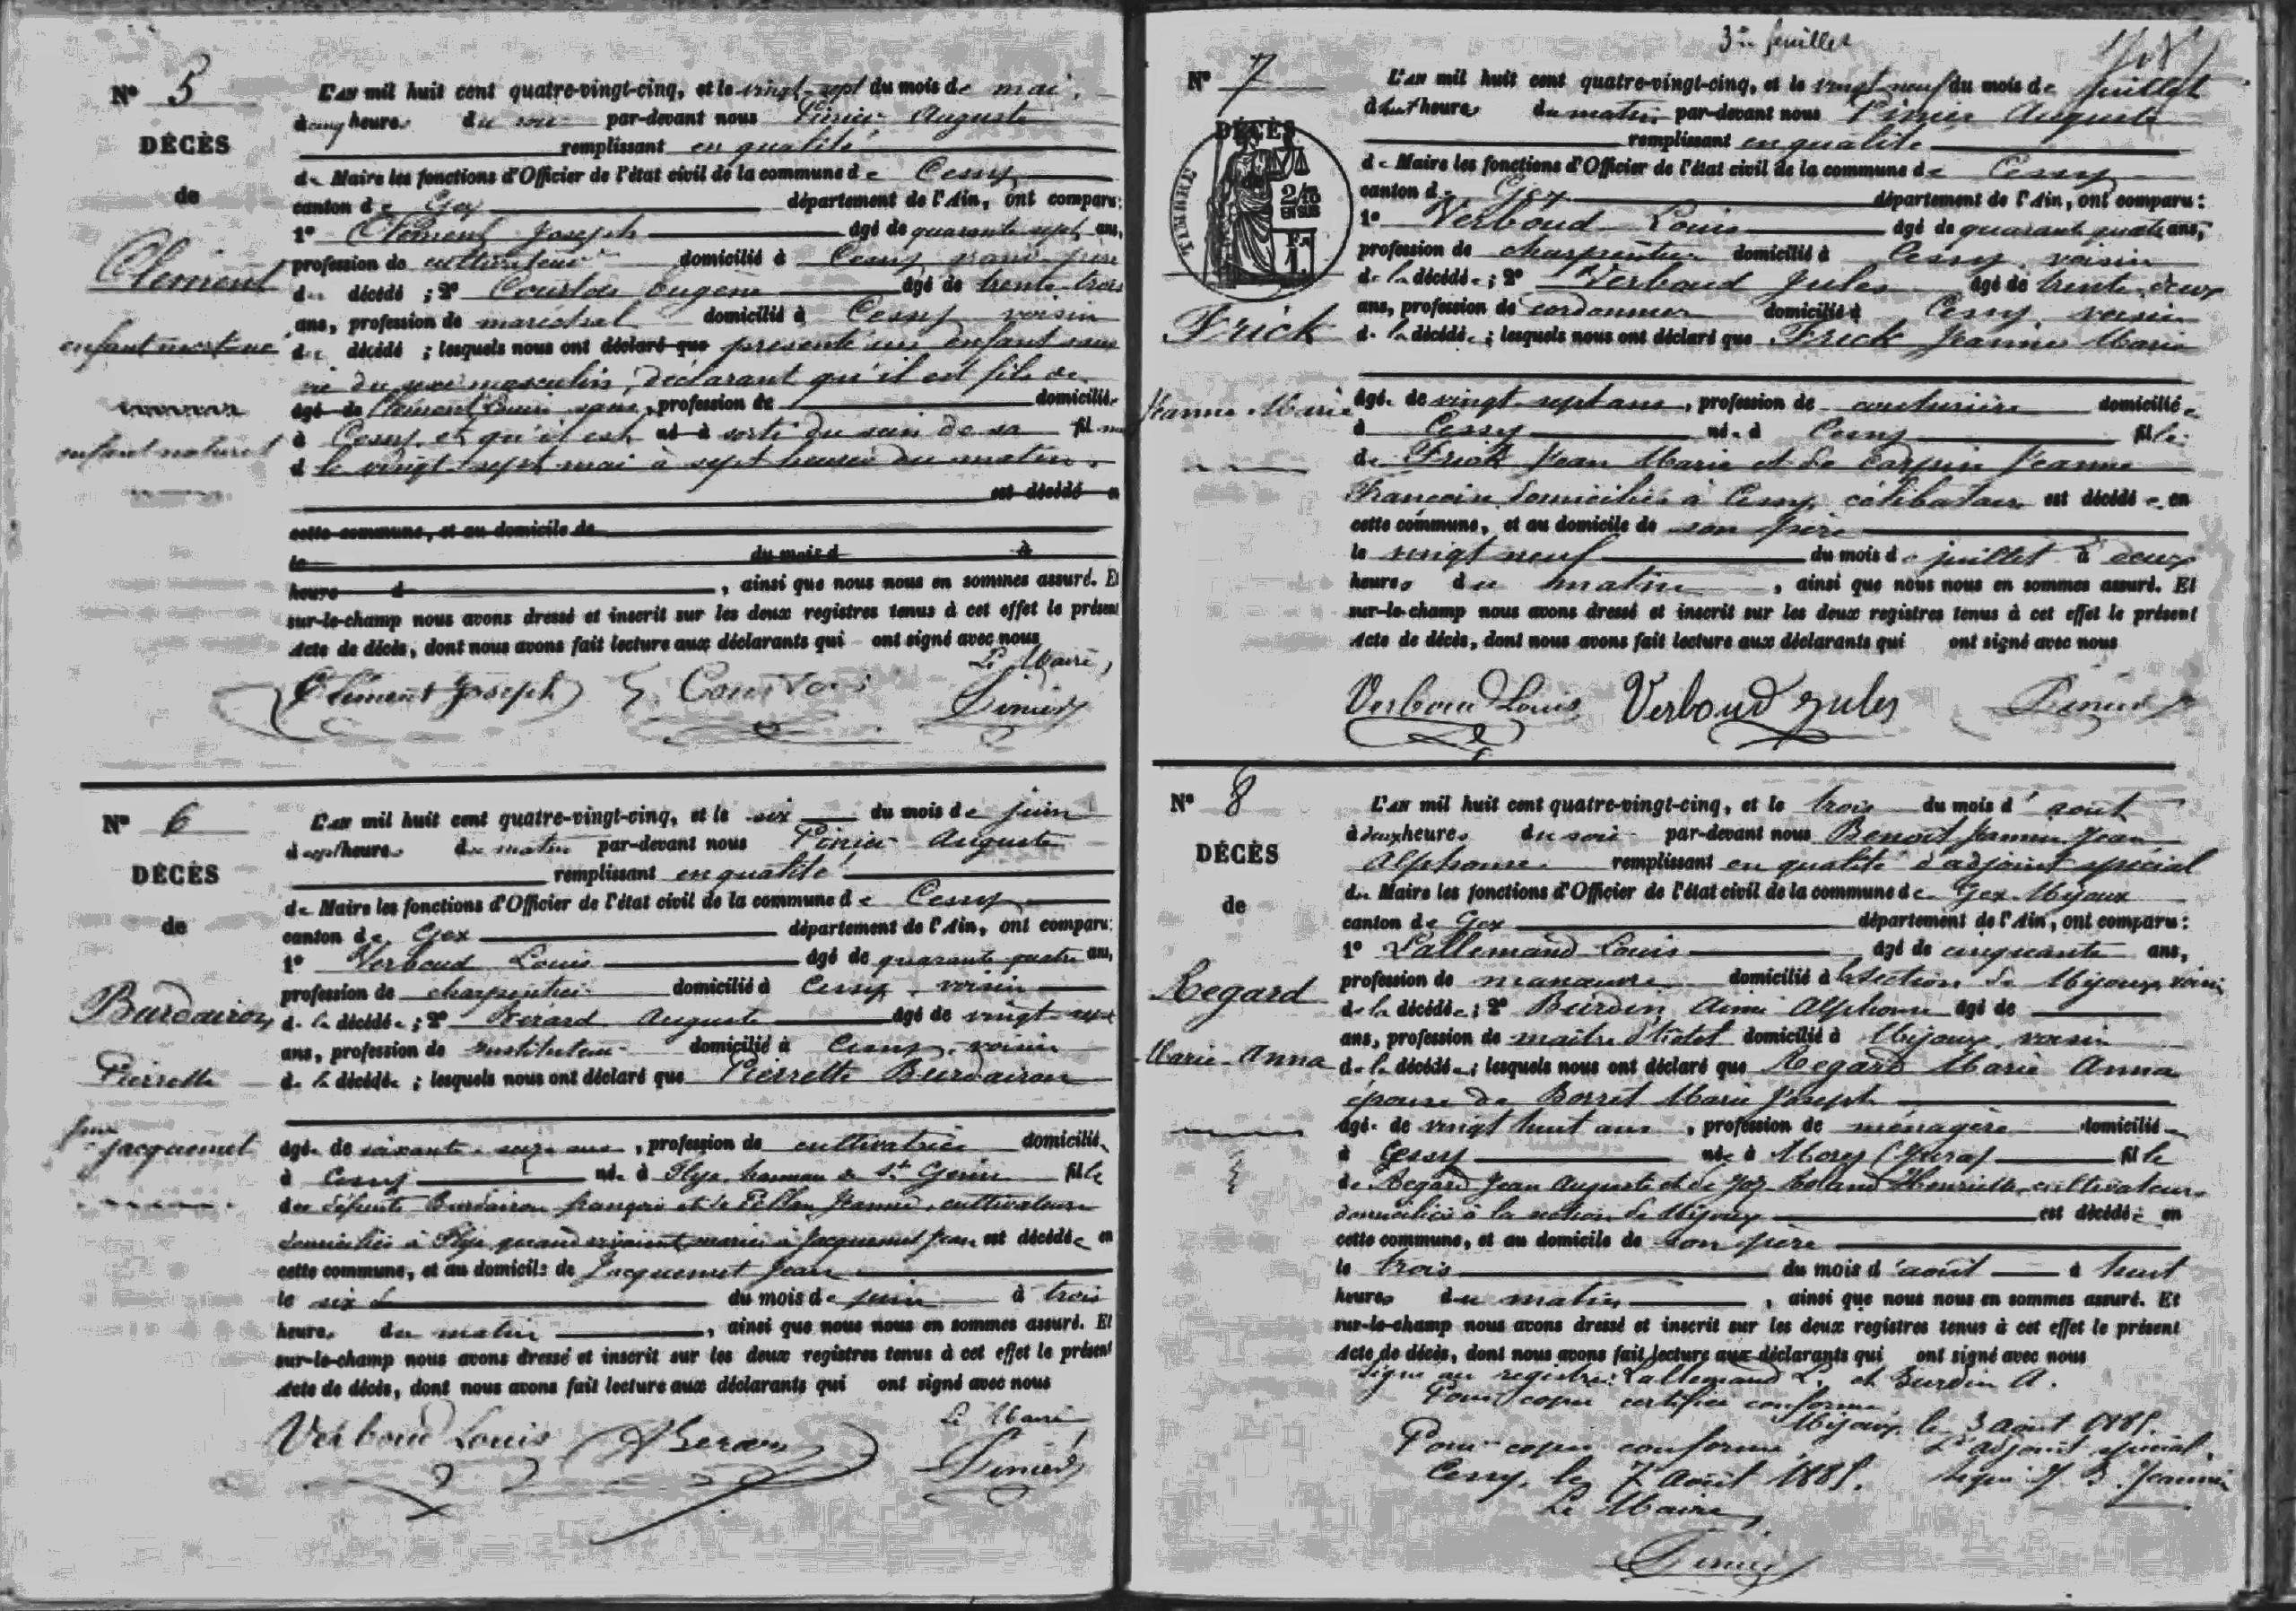 N° 5
DÉCÈS
de
Clement
enfant mort-né
enfant naturel
L'an mil huit cent quatre-vingt-cinq, et le vingt-sept du mois de mai,
à cinq heures du soir par-devant nous Pinier Auguste
remplissant en qualité
de Maire les fonctions d'Officier de l'état civil de la commune de Cessy
canton de Gex département de l'Ain, ont comparu:
1° Clément Joseph âgé de quarante sept ans,
profession de cultivateur domicilié à Cessy grand père
du décédé ; 2° Courtois Eugène âgé de trente trois
ans, profession de maréchal domicilié à Cessy voisin
du décédé ; lesquels nous ont déclaré que présenté un enfant sans
vie du sexe masculin, déclarant qu'il est fils de
âgé de Clément, profession de domicilié
à Cessy et qu'il est né à sorti du sein de sa fil
d le vingt sept mai à sept heures du matin.
est décédé en
cette commune, et au domicile de
le du mois d à
heure d , ainsi que nous nous en sommes assuré. Et
sur-le-champ nous avons dressé et inscrit sur les deux registres tenus à cet effet le présent
Acte de décès, dont nous avons fait lecture aux déclarants qui ont signé avec nous
Le Maire,
Clément Joseph E. Courtois Pinier
N° 6
DÉCÈS
de
Burdairon
Pierrette
Jacquemet
L'an mil huit cent quatre-vingt-cinq, et le six du mois de juin
à sept heures du matin par-devant nous Pinier Auguste
remplissant en qualité
de Maire les fonctions d'Officier de l'état civil de la commune de Cessy
canton de Gex département de l'Ain, ont comparu:
1° Verboud Louis âgé de quarante quatre ans,
profession de charpentier domicilié à Cessy, voisin
de la décédée ; 2° Berard Auguste âgé de vingt
ans, profession de instituteur domicilié à Cessy, voisin
de la décédée ; lesquels nous ont déclaré que Pierrette Burdairon
âgée de soixante seize ans, profession de cultivatrice domiciliée
à Cessy née à hameau de St Genis fille
des défunts Burdairon françois et de Jeanne, cultivateurs
domiciliés à quand vivaient, mariée à Jacquemet Jean est décédée en
cette commune, et au domicile de Jacquemet Jean
le six du mois de juin à trois
heures du matin , ainsi que nous nous en sommes assuré. Et
sur-le-champ nous avons dressé et inscrit sur les deux registres tenus à cet effet le présent
Acte de décès, dont nous avons fait lecture aux déclarants qui ont signé avec nous
Le Maire
Verboud Louis A Berard Pinier
3me feuillet
N° 7
DÉCÈS
TIMBRE
2/10
EN SUS
Frick
Jeanne Marie
L'an mil huit cent quatre-vingt-cinq, et le vingt neuf du mois de juillet
à huit heures du matin par-devant nous Pinier Auguste
remplissant en qualité
de Maire les fonctions d'Officier de l'état civil de la commune de Cessy
canton de Gex département de l'Ain, ont comparu:
1° Verboud Louis âgé de quarante quatre ans,
profession de charpentier domicilié à Cessy, voisin
de la décédée ; 2° Verboud Jules âgé de trente deux
ans, profession de cordonnier domicilié à Cessy, voisin
de la décédée ; lesquels nous ont déclaré que Frick Jeanne Marie
âgée de vingt sept ans, profession de couturière domiciliée
à Cessy née à Cessy fille
de Frick Jean Marie et de Jeanne
Françoise domiciliés à Cessy, célibataire est décédée en
cette commune, et au domicile de son père
le vingt neuf du mois de juillet à deux
heures du matin , ainsi que nous nous en sommes assuré. Et
sur-le-champ nous avons dressé et inscrit sur les deux registres tenus à cet effet le présent
Acte de décès, dont nous avons fait lecture aux déclarants qui ont signé avec nous
Verboud Louis Verboud Jules Pinier
N° 8
DÉCÈS
de
Regard
Marie-Anna
L'an mil huit cent quatre-vingt-cinq, et le trois du mois d'août
à deux heures du soir par-devant nous Benoit Jeannin Jean
Alphonse remplissant en qualité d'adjoint spécial
du Maire les fonctions d'Officier de l'état civil de la commune de Gex-Mijoux
canton de Gex département de l'Ain, ont comparu:
1° Lallemand Louis âgé de cinquante ans,
profession de manœuvre domicilié à la section de Mijoux, voisin
de la décédée ; 2° Burdin Aimé Alphonse âgé de
ans, profession de maître d'hôtel domicilié à Mijoux, voisin
de la décédée ; lesquels nous ont déclaré que Regard Marie Anna
épouse de Borret Marie Joseph
âgée de vingt huit ans, profession de ménagère domiciliée
à Cessy née à Morez (Jura) fille
de Regard Jean Auguste et de Henriette, cultivateurs
domiciliés à la section de Mijoux est décédée en
cette commune, et au domicile de son père
le trois du mois d'août à huit
heures du matin , ainsi que nous nous en sommes assuré. Et
sur-le-champ nous avons dressé et inscrit sur les deux registres tenus à cet effet le présent
Acte de décès, dont nous avons fait lecture aux déclarants qui ont signé avec nous
Signé au registre: Lallemand L. et Burdin A.
Pour copie certifiée conforme
Mijoux le 3 août 1885.
Pour copie conforme, L'adjoint spécial,
Cessy, le 7 août 1885. Signé: J. B. Jeannin
Le Maire,
Pinier